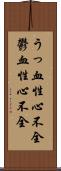 うっ血性心不全
鬱血性心不全